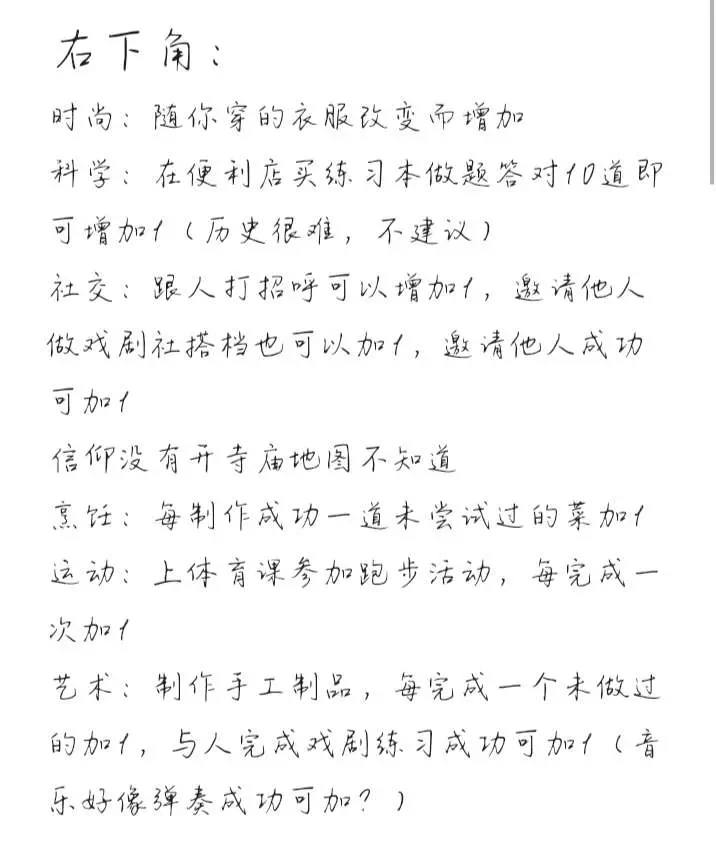 右下角：
时尚：随你穿的衣服改变而增加
科学：在便利店买练习本做题答对10道即
可增加1（历史很难，不建议）
社交：跟人打招呼可以增加1，邀请他人
做戏剧社搭档也可以加1，邀请他人成功
可加1
信仰没有开寺庙地图不知道
烹饪：每制作成功一道未尝试过的菜加1
运动：上体育课参加跑步活动，每完成一
次加1
艺术：制作手工制品，每完成一个未做过
的加1，与人完成戏剧练习成功可加1（音
乐好像弹奏成功可加？）